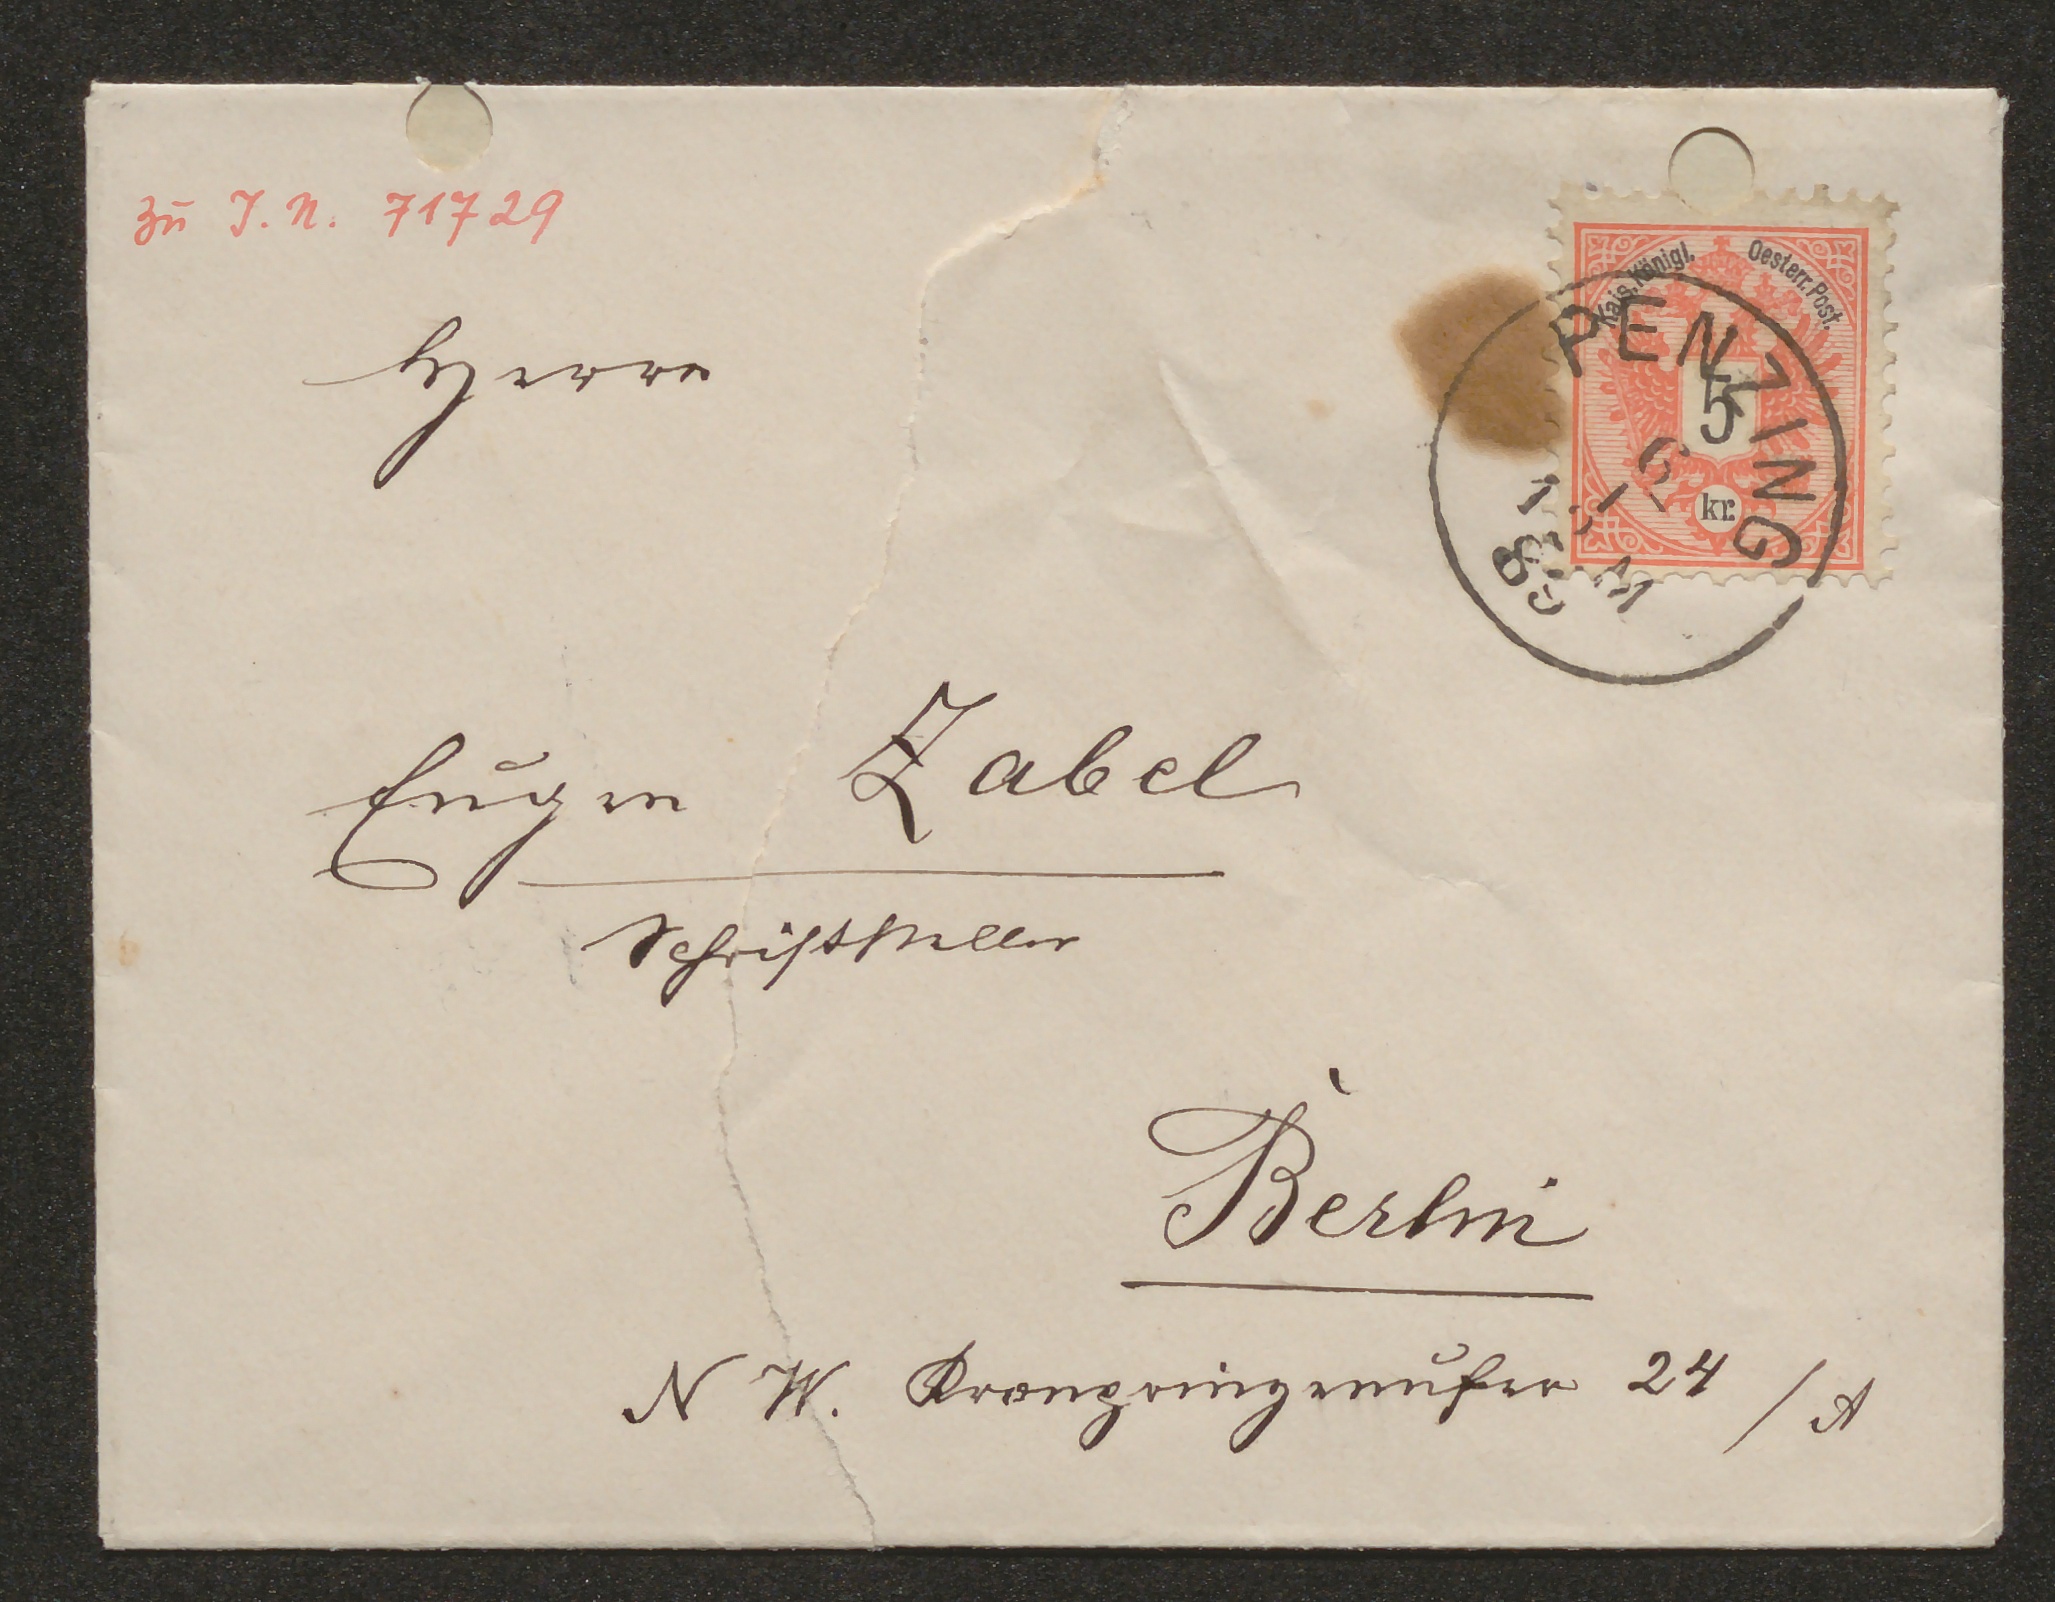 zu I. N. 71729
Kais. Königl. Oesterr. Post.
5
kr.
PENZING
Herrn
Eugen Zabel
Schriftsteller
Berlin
N W. Kronprinzenufer 24 / A